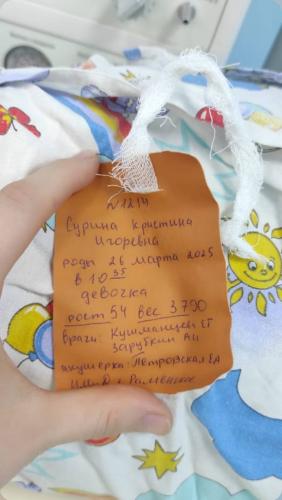 N 1214
Сурина Кристина
Игоревна
роды 26 марта 2025
в 10 35
девочка
рост 54 вес 3790
врачи: Кушманцев ЕГ
Зарубкин АИ
акушерка: Петровская ЕА